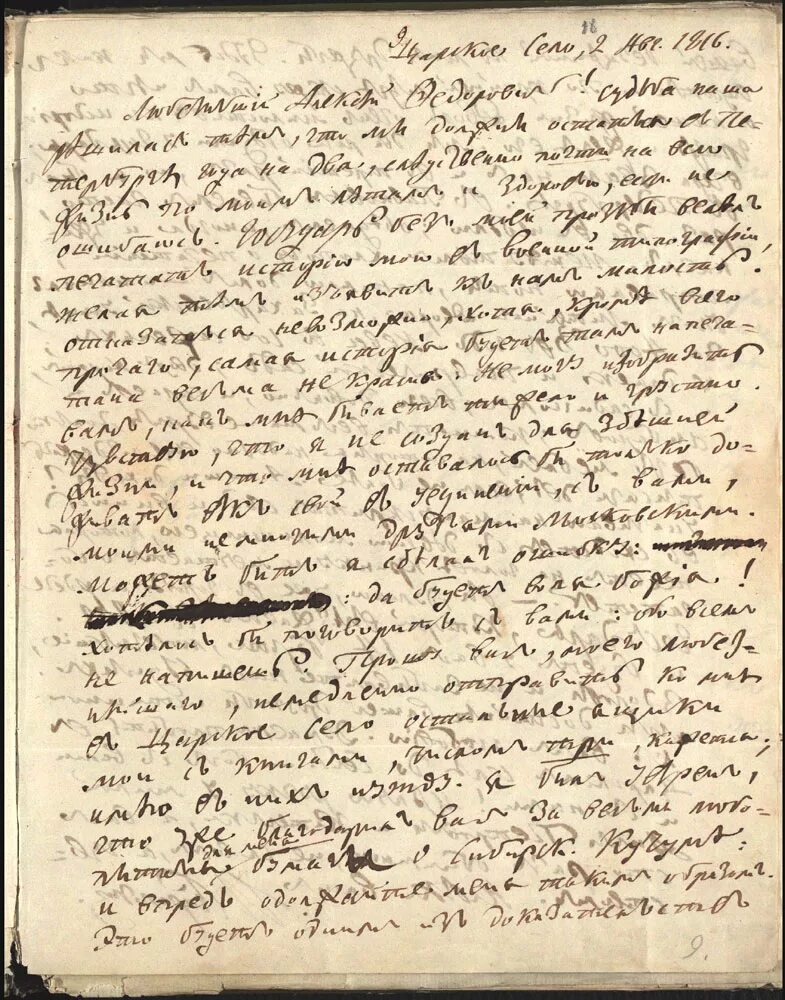 16
Царское Село, 2 Авг. 1816.
Любезнѣйшій Алексѣй Ѳедоровичь! Судьба наша
рѣшилась тѣмъ, что мы должны остаться въ Пе-
тербургѣ года на два, слѣдственно почти на всю
жизнь по моимъ лѣтамъ и здоровью, если не
ошибаюсь. Государь безъ моей прозьбы велѣлъ
печатать исторію мою въ военной типографіи,
желая тѣмъ изъявить къ намъ милость.
отказаться невозможно, хотя, кромѣ всего
прочаго, самая исторія будетъ тамъ напеча-
тана весьма не красиво. Не могу изобразить
вамъ, какъ мнѣ бываетъ тяжело и грустно.
Чувствую, что я не созданъ для здѣшней
жизни, и что мнѣ оставалось бы только до-
живать вѣкъ свой въ уединеніи, съ вами,
моими немногими друзьями Московскими.
Можетъ быть я сдѣлалъ ошибку:
: да будетъ воля Божія!
хотѣлось бы поговорить съ вами: обо всемъ
не напишешь. Прошу васъ, моего любез-
нѣйшаго, немедленно отправить ко мнѣ
въ Царское Село остальные ящики
мои съ книгами, числомъ три, кажется;
имѣю въ нихъ нужду. Я былъ увѣренъ,
что уже благодарилъ васъ за весьма любо-
пытныя для меня бумаги о Сибирск. Кучумѣ:
и впредь одолжайте меня такимъ образомъ.
Это будетъ однимъ изъ доказательствъ
9.